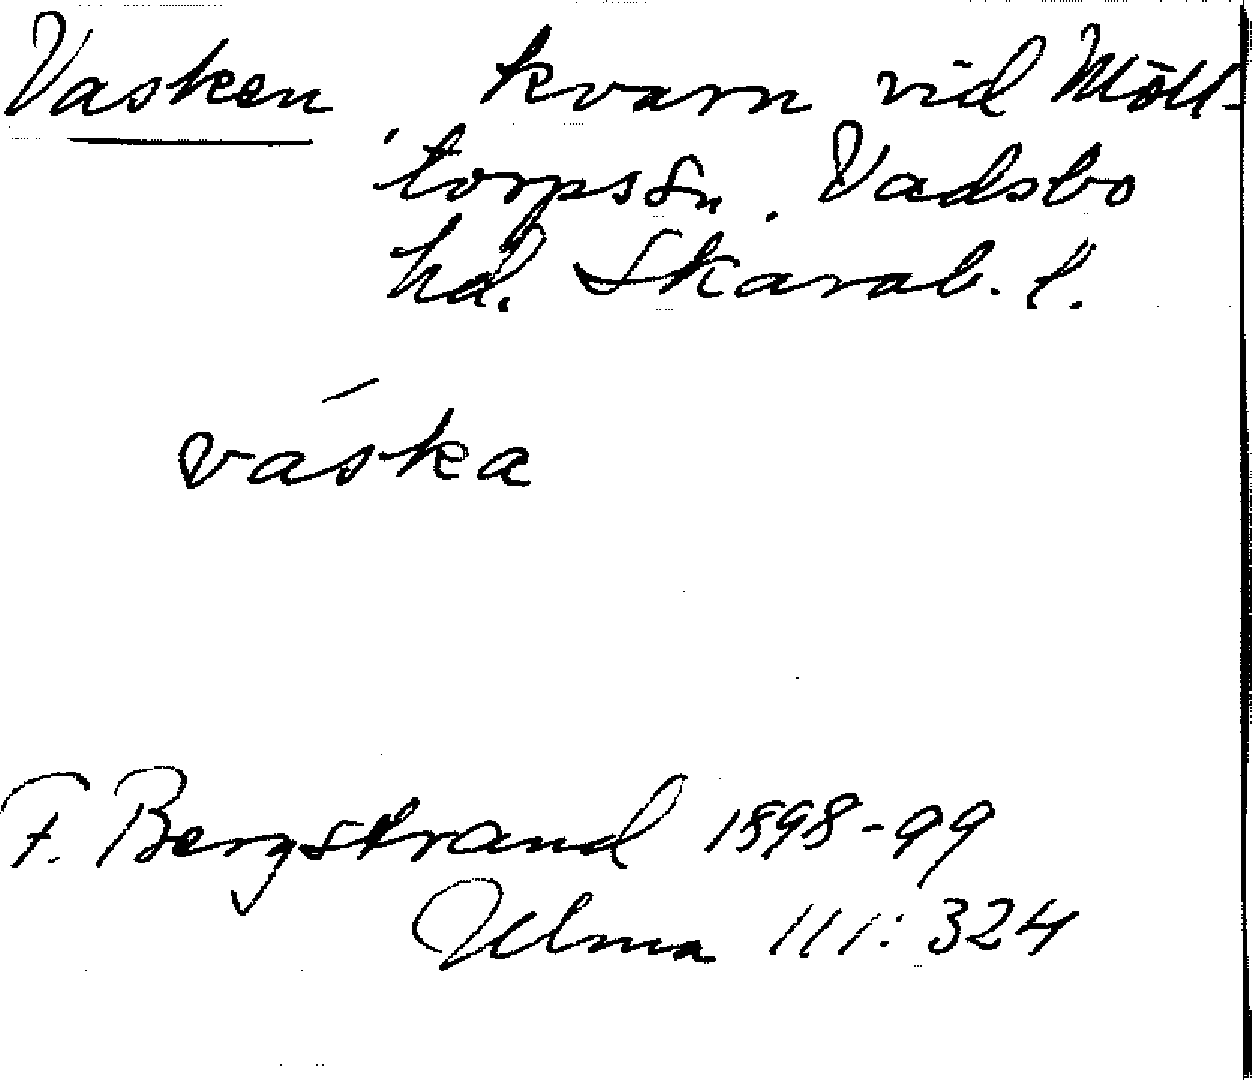 Vasken, kvarn vid Möll-
torps sn. Vadsbo
hd. Skarab. l.
váska
F. Bergstrand 1898-99
Ulma 111:324